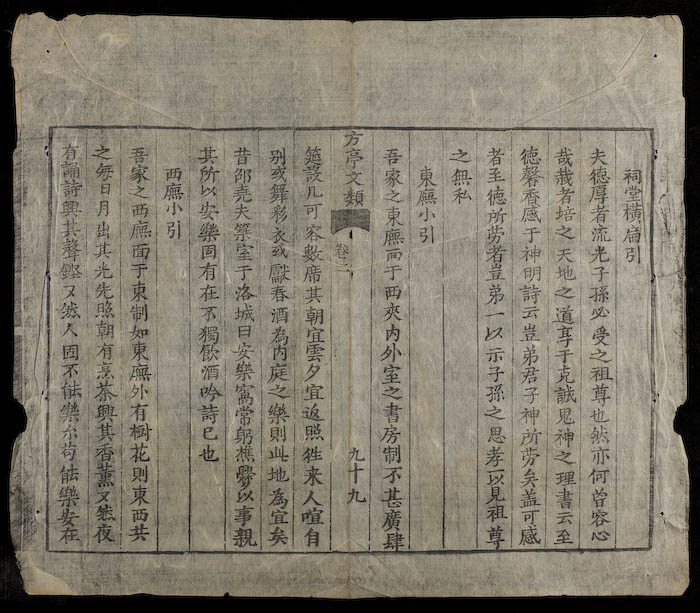 祠堂橫扁引
夫德厚者流光子孫必受之祖尊也然亦何曾容心
哉栽者培之天地之道享于克誠鬼神之理書云至
德馨香感于神明詩云豈弟君子神所勞矣盖可感
者至德所勞者豈弟一以示子孫之思孝一以見祖尊
之無私
東廡小引
吾家之東廡面于西夾內外室之書房制不甚廣肆
方亭文類
卷二
九十九
筵設几可容數席其朝宜雲夕宜返照往來人喧自
別或舞彩衣或獻春酒為內庭之樂則此地為宜矣
昔邵堯夫築室于洛城曰安樂窩常躬樵爨以事親
其所以安樂固有在不獨飲酒吟詩已也
西廡小引
吾家之西廡面于東制如東廡外有樹花則東西共
之每日月出其光先照朝有烹茶興其香薰又然夜
有誦詩興其聲鏗又然人固不能樂尒苟能樂安在